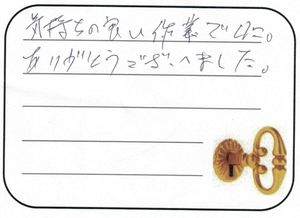 気持ちの良い作業でした。
ありがとうございました。